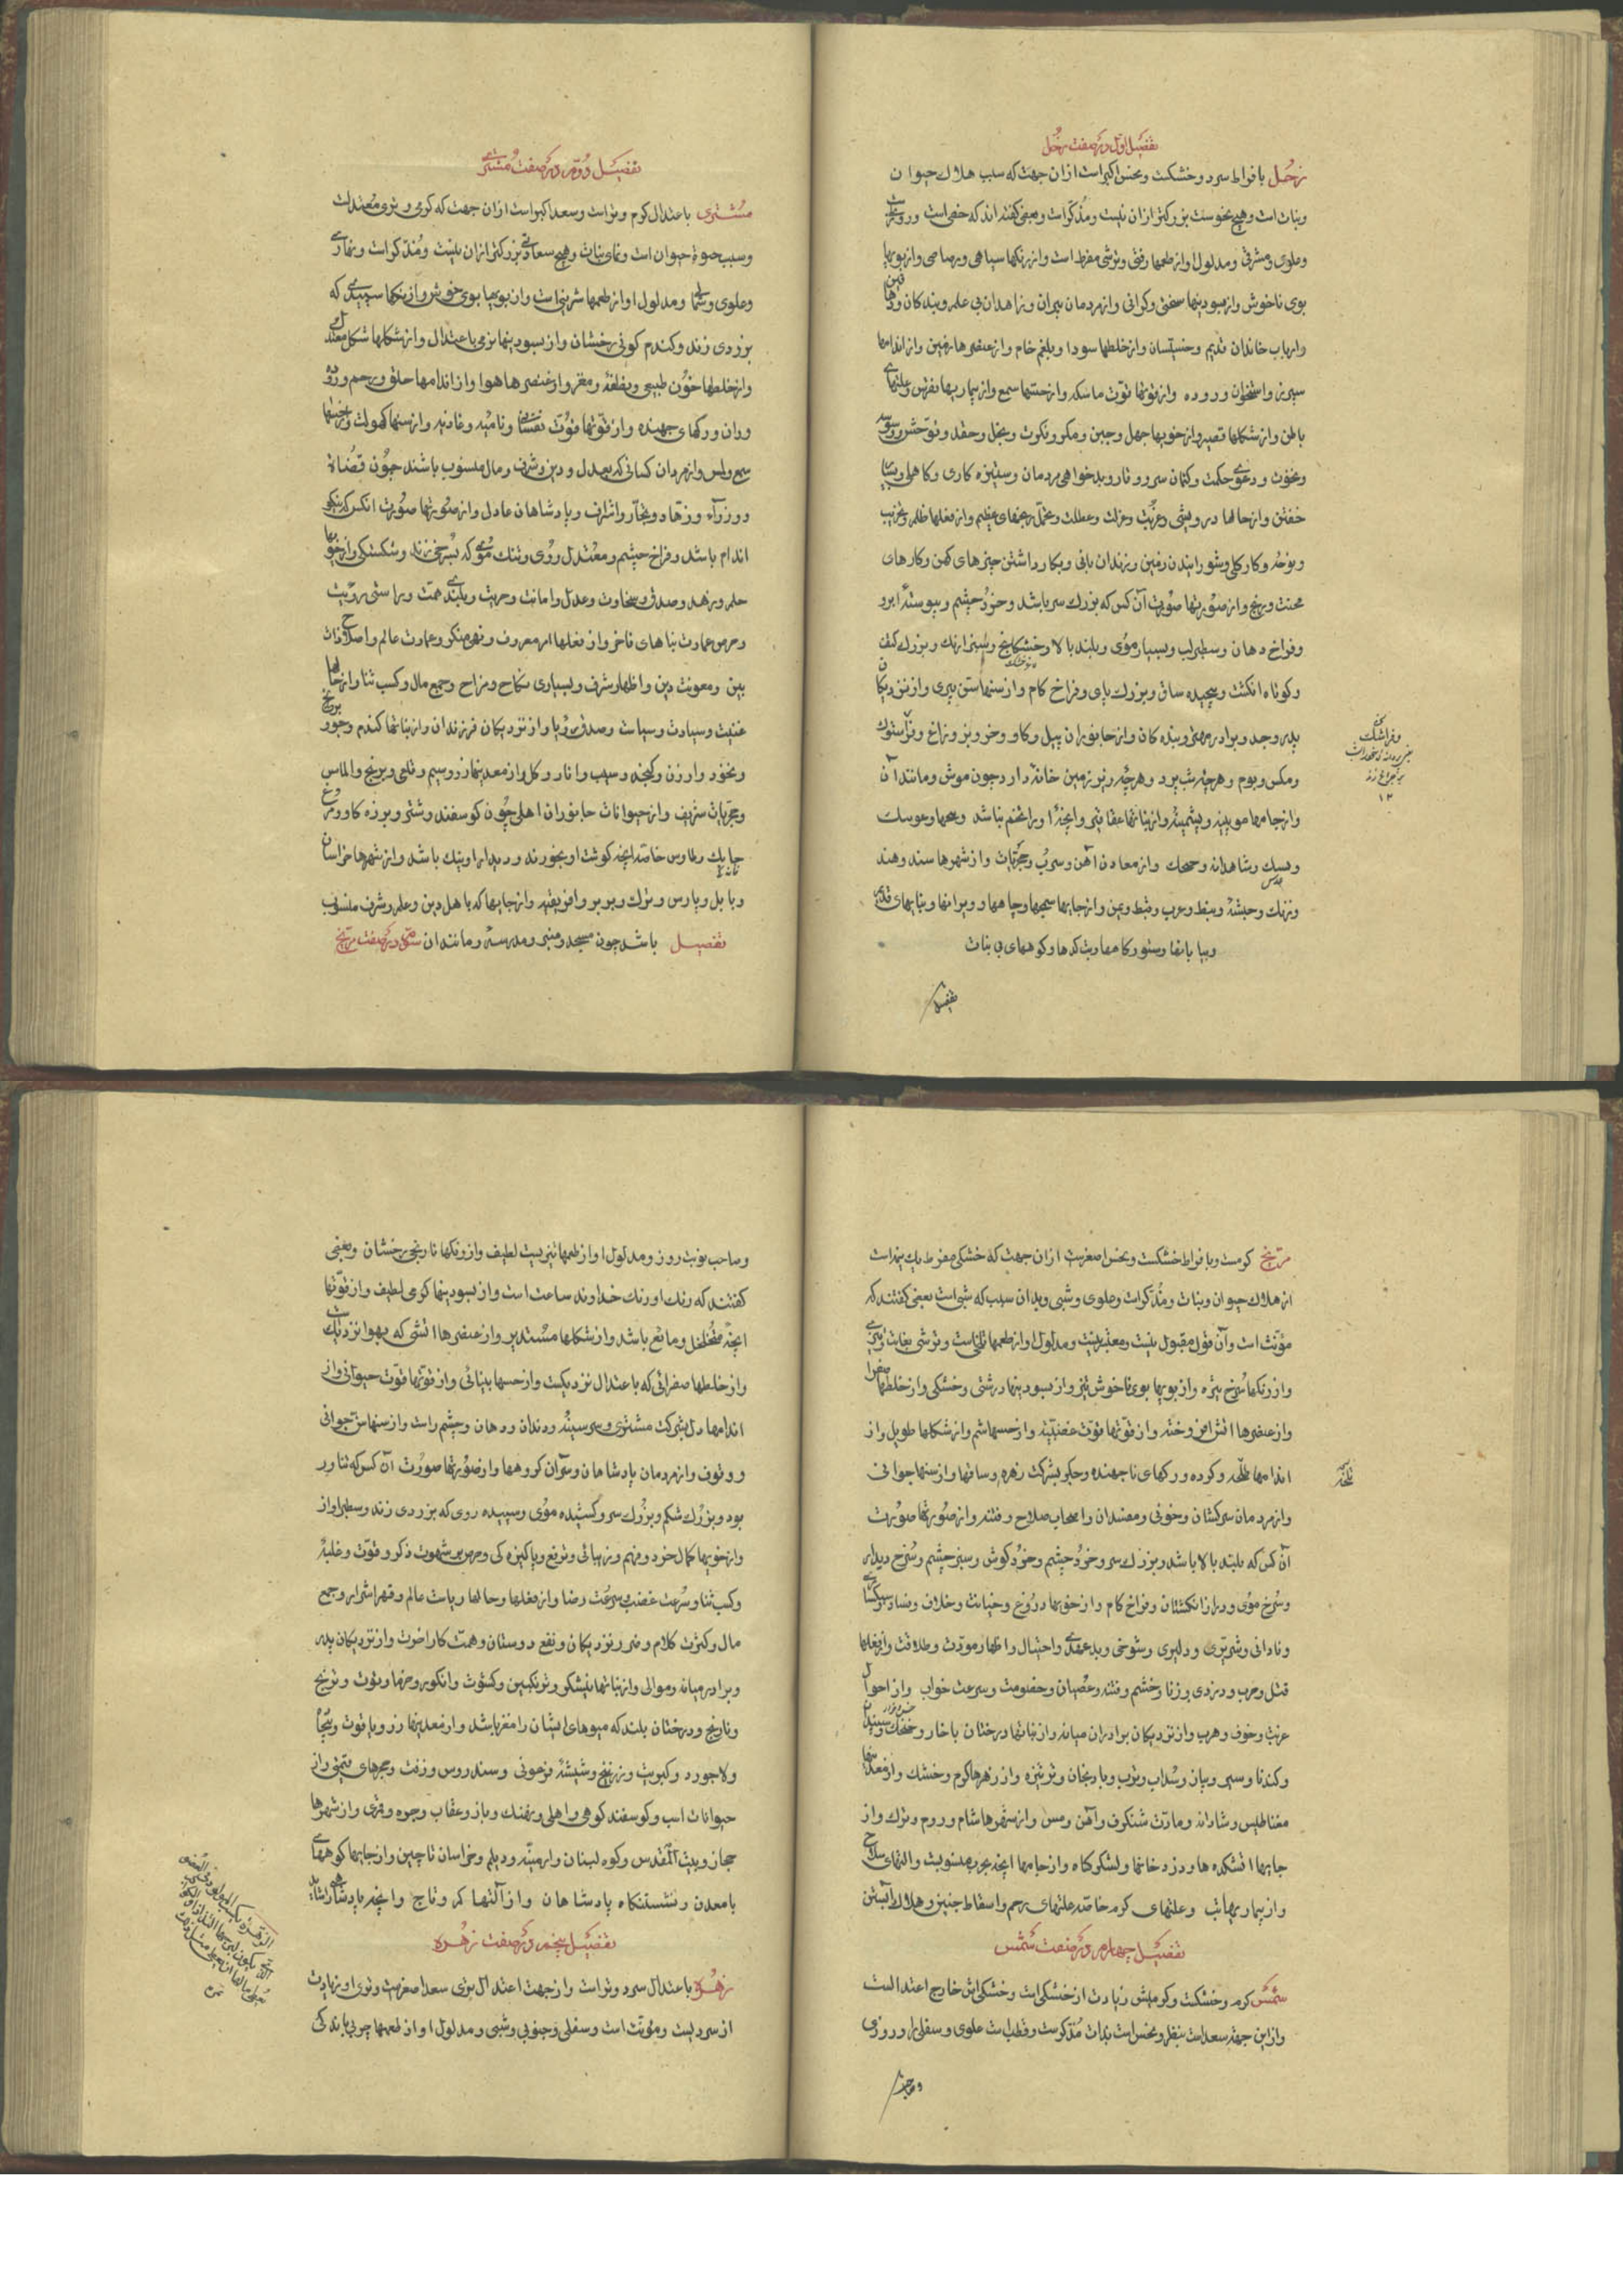 تفصیل اول در صفت زحل
زحل بافراط سرد و خشکست و نحس اکبر است ازان جهت که سبب هلاک حیوان
و نبات است و هیچ نحوست بزرکتر ازان نیست و مذکر است و بعضی کفته اند که خنثی است و روزی
و علوی و مشرقی و مدلول او از طعمها زفتی و ترشی مفرط است و از رنکها سیاهی و رصاصی و از بویها
بوی ناخوش و از بسودنیها سختی و کرانی و از مردمان پیران و زاهدان بی علم و بندکان و دهاقین
و ارباب خاندان قدیم و خسیسان و از خلطها سودا و بلغم خام و از عنصرها زمین و از اندامها
سپرز و استخوان و روده و از قوتها قوت ماسکه و از حسها سمع و از بیماریها نقرس و علتهای
باطن و از شکلها قصیر و از خویها جهل و جبن و مکر و نکرت و بخل و حقد و توحش و وسوسه
و نخوت و دعوی حکمت و کتمان سر و وقار و بدخواهی مردمان و ستیزه کاری و کاهلی و بسیار
خفتن و از حالها درویشی و غربت و عزلت و عطلت و تحمل رنجهای عظیم و از فعلها ظلم و تخریب
و نوحه و کار کلی و شورانیدن زمین و زندان بانی و بکار داشتن چیزهای کهن و کارهای
محنت و رنج و از صورتها صورت آن کس که بزرک سر باشد و خرد چشم و پیوسته ابرو
و فراخ دهان و سطبر لب و بسیار موی و بلند بالا و خشک انج و سبز ارنک و بزرک کتف
و کوتاه انکشت و پیچیده ساق و بزرک پای و فراخ کام و از سنها سن پیری و از نزدیکان
پدر و جد و برادر مهتر و بنده کان و از جانوران پیل و کاو و خر و بز و زاغ و فراستوک
و مکس و بوم و هرچه شب پرد و هرچه در زیر زمین خانه دارد چون موش و مانند آن
و از جامها مویینه و پشمینه و از نباتها عفاقیر و انچه او را تخم نباشد
و شاهدانه و از معادن آهن و سرب و حجریات و از شهرها سند و هند
و زنک و حبشه و نبط و عرب و قبط و یمن و از جایها سجنها و چاهها و ویرانها و بناهای قدیم
و بیابانها و ستورکاه و دیت کدها و کوههای بی نبات
تفصیل
و فراشتک
۱۲
تفصیل دوم در صفت مشتری
مشتری باعتدال کرم و تر است و سعد اکبر است ازان جهت که کرمی و تری معتدلست
و سبب حیوة حیوان است و نمای نبات و هیچ سعادتی بزرکتر ازان نیست و مذکر است و نهاری
و علوی و شمالی و مدلول او از طعمها شیرینی است و از بویها بوی خوش و از رنکها سپیدی که
بزردی زند و کندم کونی رخشان و از بسودنیها نرمی باعتدال و از شکلها شکل معتدل
و از خلطها خون طبیعی و نطفه و مغز و از عنصرها هوا و از اندامها حلق و رحم و روده
و ران و رکهای جهنده و از قوتها قوت نفسانی و نامیه و غاذیه و از سنها کهولت و از حسها
سمع و لمس و از مردان کسانی که بعدل و دین و شرف و مال منسوب باشند چون قضاة
و وزرآء و زهاد و تجار و اشراف و پادشاهان عادل و از صورتها صورت انکس که نیکو
اندام باشد و فراخ چشم و معتدل روی و تنک موی که بسرخی زند و شکستکی و از خویها
حلم و زهد و صدق و سخاوت و عدل و امانت و حریت و بلندی همت و راستی رؤیت
و حرص عمارت بناهای فاخر و از فعلها امر معروف و نهی منکر و عمارت عالم و اصلاح ذات
بین و معونت دین و اظهار شرف و بسیاری نکاح و مزاح و جمع مال و کسب ثنا و از حالها
غنیت و سیادت و سیاست و صدق رؤیا و از نزدیکان فرزندان و از نباتها کندم و جو و برنج
و نخود و ارزن و کنجد و سیب و انار و کل و از معدنیها زر و سیم و قلعی و برنج و الماس
و حجریات شریف و از حیوانات جانوران اهلی چون کوسفند و شتر و یوزه کاو و مرغ
خانکی و طاوس خاصه انچه کوشت او بخورند و دیدار او نیک باشد و از شهرها خراسان
و بابل و پارس و ترک و بربر و افریقیه و از جایها که باهل دین و علم و شرف منسوب
باشد چون مسجد و منبر و مدرسه و مانند ان تفصیل سوم در صفت مریخ
مریخ کرمست و بافراط خشکست و نحس اصغرست ازان جهت که خشکی مفرط یک نیمه است
از هلاک حیوان و نبات و مذکر است و علوی و شبی و بدان سبب که شبی است بعضی کفتند که
مؤنث است و آن قول مقبول نیست و معتبر نیست و مدلول او از طعمها تلخیست و ترشی بغایت تیزی
و از رنکها سرخ تیره و از بویها بوی ناخوش تیز و از بسودنیها درشتی و خشکی و از خلطها صفرا
و از عنصرها اتش افروخته و از قوتها قوت غضبیه و از حسها شم و از شکلها طویل و از
اندامها تلخه و کرده و رکهای ناجهنده و جکر بشرکت زهره و ساقها و از سنها جوانی
و از مردمان سرکشان و خونی و مفسدان و اصحاب صلاح و فتنه و از صورتها صورت
آن کس که بلند بالا باشد و بزرک سر و خرد چشم و خرد کوش و سبز چشم و سرخ دیدار
و سرخ موی و دراز انکشتان و فراخ کام و از خویها دروغ و خیانت و خلاف و فساد و سبکساری
و نادانی و شریری و دلیری و شوخی و بد عهدی و احتیال و اظهار مودت و طلاقت و از فعلها
قتل و حرب و دزدی و زنا و خشم و فتنه و عصیان و خصومت و سرعت خواب و از احوال
غربت و خوف و هرب و از نزدیکان برادران میانه و از نباتها درختان باخار و سپندان
و کندنا و سیر و پیاز و سداب و ترب و بادنجان و ترتیزه و از زهرها کرم و خشک و از معدنیها
مغناطیس و شادنه و مادت شنکرف و آهن و مس و از شهرها شام و روم و ترک و از
جایها اتشکده ها و دزد خانها و لشکرکاه و از جامها انچه بحرب منسوبست و التهای سلاح
و از بیماریها تب و علتهای کرم خاصه علتهای رحم و اسقاط جنین و هلاک آبستن
تفصیل چهارم در صفت شمس
شمس کرم و خشکست و کرمیش زیادت از خشکی است و خشکی اش خارج اعتدالست
و از این جهة سعدست بنظر و نحس است بذات مذکرست و قطب است علوی و سفلی را و روزی
و صاحب
تلخه
و صاحب نوبت روز و مدلول او از طعمها تیزیست لطیف و از رنکها نارنجی رخشان و بعضی
کفتند که رنک او رنک خداوند ساعت است و از بسودنیها کرمی لطیف و از قوتها
انچه متخلخل و مانع باشد و از شکلها مستدیر و از عنصرها اتشی که بهوا نزدیکست
و از خلطها صفرائی که باعتدال نزدیکست و از حسها بینائی و از قوتها قوت حیوانی و از
اندامها دل بشرکت مشتری و سر سینه و دندان و دهان و چشم راست و از سنها سن جوانی
و وقوف و از مردمان پادشاهان و سران کروهها و از صورتها صورت آن کس که تناور
بود و بزرک شکم و بزرک سر و کشیده موی و سپیده روی که بزردی زند و سطبر اواز
و از خویها کمال خرد و فهم و زیبائی و ترفع و پاکیزه کی و حرص بر شهوت ذکر و قوت و غلبه
و کسب ثنا و سرعت غضب و سرعت رضا و از فعلها و حالها ریاست عالم و قهر اشرار و جمع
مال و کثرت کلام و ضر و نزدیکان و نفع دوستان و همت کار اخرت و از نزدیکان پدر
و برادر میانه و موالی و از نباتها نیشکر و ترنکبین و کشوث و انکور و خرما و توت و ترنج
و نارنج و درختان بلند که میوهای ایشان را مغز باشد و از معدنیها زر و یاقوت و بیجاده
و لاجورد و کبریت و زرنیخ و شیشه فرعونی و سندروس و زفت و جهرهای قیمتی و از
حیوانات اسب و کوسفند کوهی و اهلی و نهنک و باز و عقاب و جره و قمری و از شهرها
حجاز و بیت المقدس و کوه لبنان و ارمنیه و دیلم و خراسان تا چین و از جایها کوههای
بامعدن و نشستنکاه پادشاهان و از آلتها کمر و تاج و انچه پادشاهی را شاید
تفصیل پنجم در صفت زهره
زهره باعتدال سرد و تر است و از جهت اعتدال تری سعد اصغرست و تری او زیادت
از سردیست و مؤنث است و سفلی و جنوبی و شبی و مدلول او از طعمها چربی باندکی